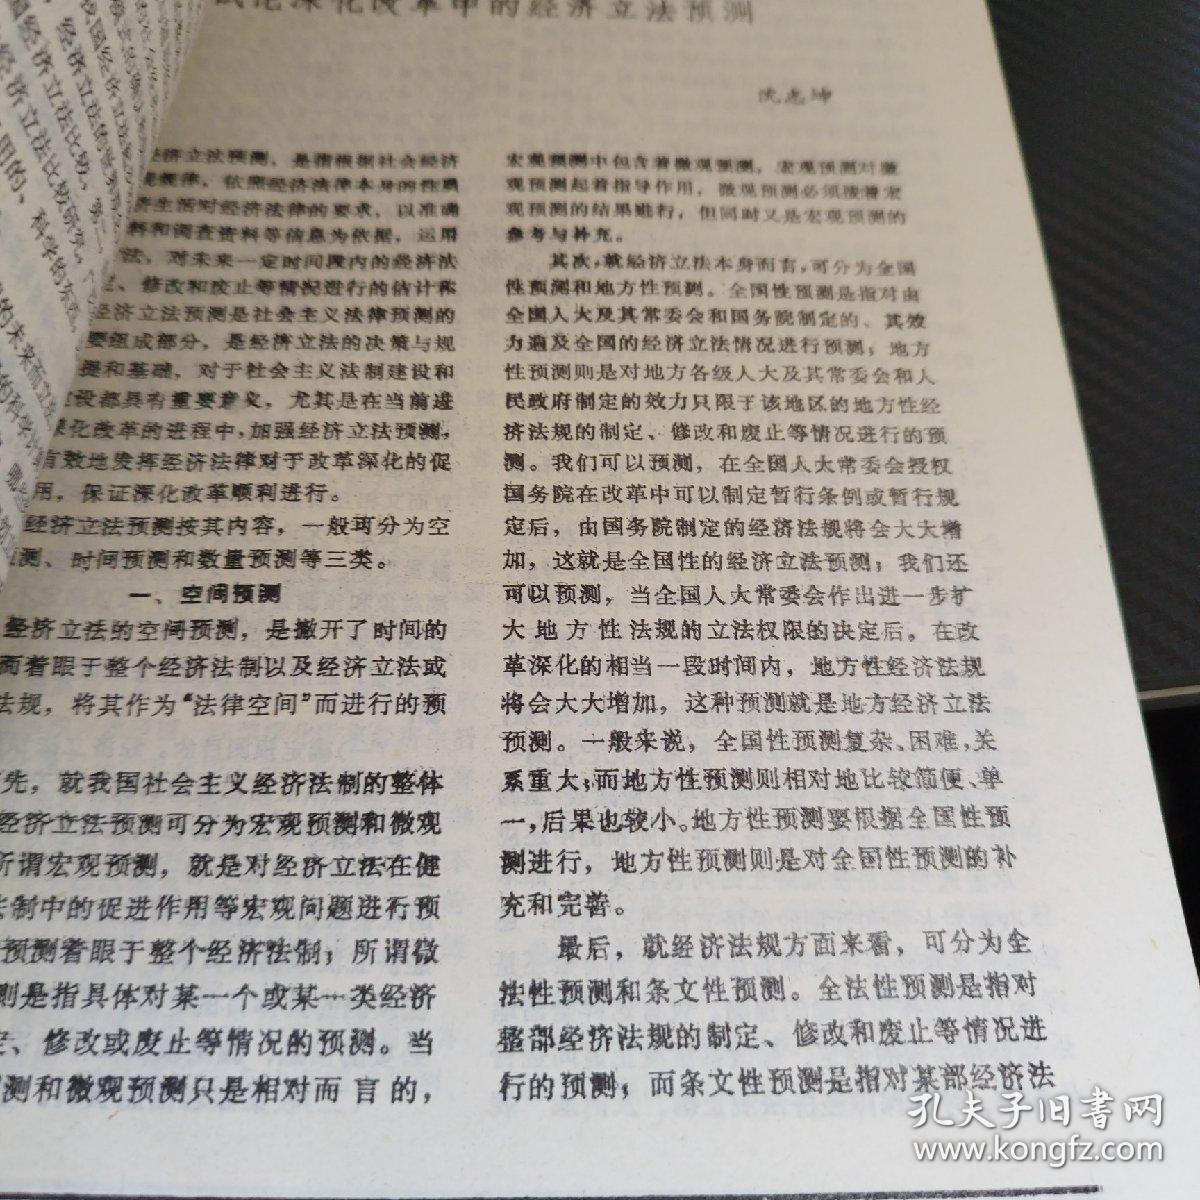 试论深化改革中的经济立法预测
经济立法预测，是指根据社会经济
规律，依照经济法律本身的性质
济生活对经济法律的要求，以准确
料和调查资料等信息为依据，运用
法，对未来一定时间段内的经济法
、修改和废止等情况进行的估计和
经济立法预测是社会主义法律预测的
要组成部分，是经济立法的决策与规
提和基础，对于社会主义法制建设和
设都具有重要意义，尤其是在当前进
深化改革的进程中，加强经济立法预测，
有效地发挥经济法律对于改革深化的促
用，保证深化改革顺利进行。
经济立法预测按其内容，一般可分为空
测、时间预测和数量预测等三类。
一、空间预测
经济立法的空间预测，是撇开了时间的
而着眼于整个经济法制以及经济立法或
法规，将其作为“法律空间”而进行的预
先，就我国社会主义经济法制的整体
经济立法预测可分为宏观预测和微观
所谓宏观预测，就是对经济立法在健
法制中的促进作用等宏观问题进行预
预测着眼于整个经济法制；所谓微
则是指具体对某一个或某一类经济
、修改或废止等情况的预测。当
测和微观预测只是相对而言的，
宏观预测中包含着微观预测，宏观预测对微
观预测起着指导作用，微观预测必须按着宏
观预测的结果进行，但同时又是宏观预测的
参考与补充。
其次，就经济立法本身而言，可分为全国
性预测和地方性预测。全国性预测是指对由
全国人大及其常委会和国务院制定的、其效
力遍及全国的经济立法情况进行预测；地方
性预测则是对地方各级人大及其常委会和人
民政府制定的效力只限于该地区的地方性经
济法规的制定、修改和废止等情况进行的预
测。我们可以预测，在全国人大常委会授权
国务院在改革中可以制定暂行条例或暂行规
定后，由国务院制定的经济法规将会大大增
加，这就是全国性的经济立法预测；我们还
可以预测，当全国人大常委会作出进一步扩
大地方性法规的立法权限的决定后，在改
革深化的相当一段时间内，地方性经济法规
将会大大增加，这种预测就是地方经济立法
预测。一般来说，全国性预测复杂、困难，关
系重大；而地方性预测则相对地比较简便、单
一，后果也较小。地方性预测要根据全国性预
测进行，地方性预测则是对全国性预测的补
充和完善。
最后，就经济法规方面来看，可分为全
法性预测和条文性预测。全法性预测是指对
整部经济法规的制定、修改和废止等情况进
行的预测；而条文性预测是指对某部经济法
孔夫子旧书网
www.kongfz.com